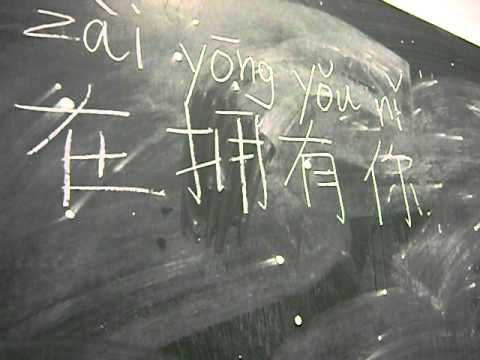 zài yōng yǒu nǐ
在拥有你